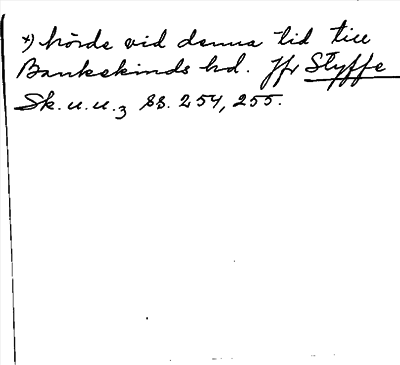 *) hörde vid denna tid till
Bankekinds hd. Jfr Styffe
Sk.u.u.3 ss. 254, 255.